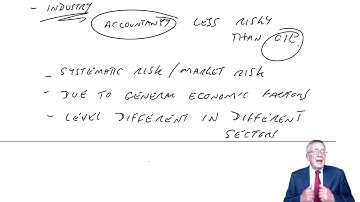 - INDUSTRY
ACCOUNTANCY LESS RISKY
THAN OIL
- SYSTEMATIC RISK / MARKET RISK
- DUE TO GENERAL ECONOMIC FACTORS
- LEVEL DIFFERENT IN DIFFERENT
SECTORS